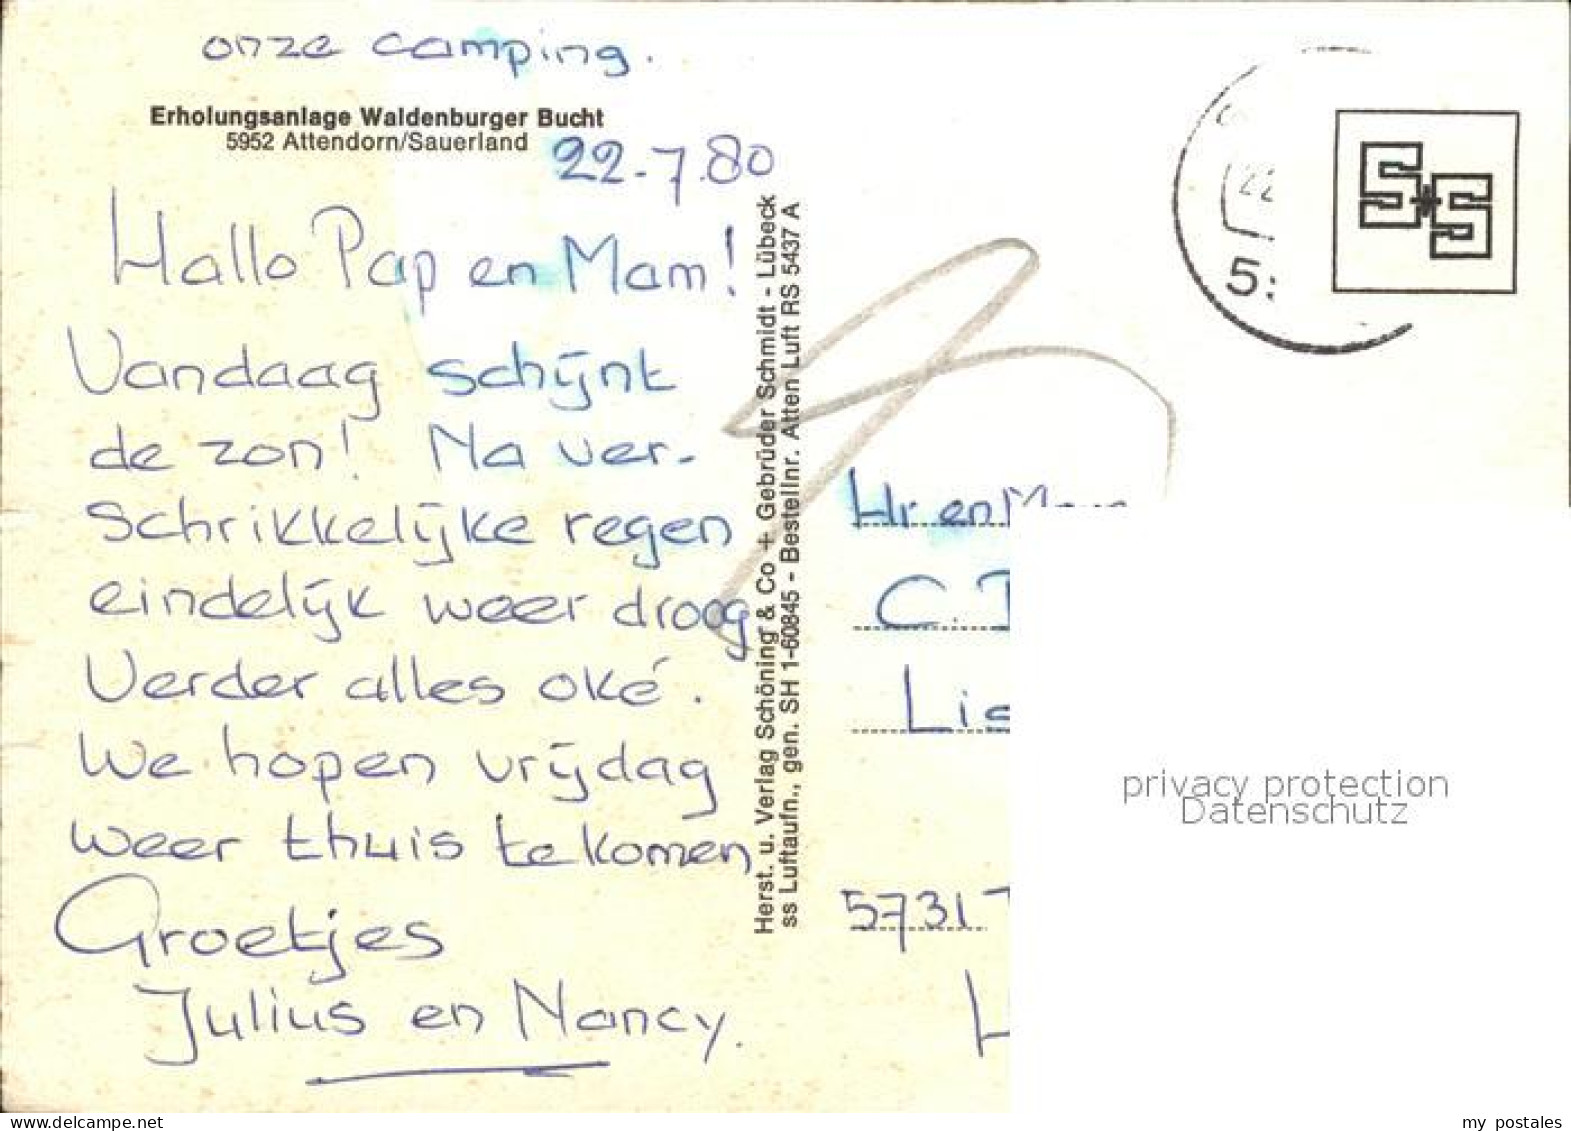 onze camping.
Erholungsanlage Waldenburger Bucht
5952 Attendorn/Sauerland
22-7.80
Hallo Pap en Mam!
Vandaag schijnt
de zon! Na ver-
schrikkelijke regen
eindelijk weer droog
Verder alles oké.
We hopen vrijdag
weer thuis te komen
Groetjes
Julius en Nancy.
Herst. u. Verlag Schöning & Co + Gebrüder Schmidt - Lübeck
ss Luftaufn., gen. SH 1-60845 - Bestellnr. Atten Luft RS 5437 A
22
5
S*S
Hr. en
C.
Lis
5731
privacy protection
Datenschutz
my postales